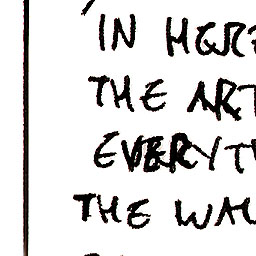 IN HERE
THE ART
EVERYT
THE WAL